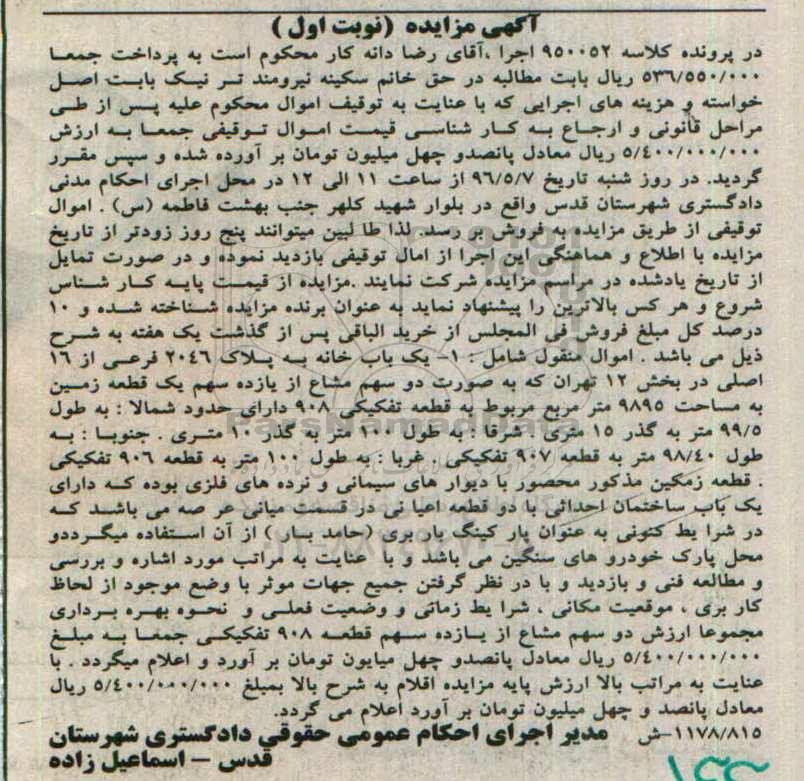 آگهی مزایده (نوبت اول)
در پرونده کلاسه ۹۵۰۰۵۲ اجرا ،آقای رضا دانه کار محکوم است به پرداخت جمعا
۵۳۶/۵۵۰/۰۰۰ ریال بابت مطالبه در حق خانم سکینه نیرومند تر نیک بابت اصل
خواسته و هزینه های اجرایی که با عنایت به توقیف اموال محکوم علیه پس از طی
مراحل قانونی و ارجاع به کار شناسی قیمت اموال توقیفی جمعا به ارزش
۵/٤۰۰/۰۰۰/۰۰۰ ریال معادل پانصدو چهل میلیون تومان بر آورده شده و سپس مقرر
گردید. در روز شنبه تاریخ ۹۶/۵/۷ از ساعت ۱۱ الی ۱۲ در محل اجرای احکام مدنی
دادگستری شهرستان قدس واقع در بلوار شهید کلهر جنب بهشت فاطمه (س) . اموال
توقیفی از طریق مزایده به فروش بر رسد. لذا طا لبین میتوانند پنج روز زودتر از تاریخ
مزایده با اطلاع و هماهنگی این اجرا از امال توقیفی بازدید نموده و در صورت تمایل
از تاریخ یادشده در مراسم مزایده شرکت نمایند .مزایده از قیمت پایه کار شناس
شروع و هر کس بالاترین را پیشنهاد نماید به عنوان برنده مزایده شناخته شده و ۱۰
درصد کل مبلغ فروش فی المجلس از خرید الباقی پس از گذشت یک هفته به شرح
ذیل می باشد . اموال منقول شامل : ۱- یک باب خانه به پلاک ۲۰٤۶ فرعی از ۱۶
اصلی در بخش ۱۲ تهران که به صورت دو سهم مشاع از یازده سهم یک قطعه زمین
به مساحت ۹۸۹۵ متر مربع مربوط به قطعه تفکیکی ۹۰۸ دارای حدود شمالا : به طول
۹۹/۵ متر به گذر ۱۵ متری . شرقا : به طول ۱۰۰ متر به گذر ۱۰ متری . جنوبا : به
طول ۹۸/٤۰ متر به قطعه ۹۰۷ تفکیکی . غربا : به طول ۱۰۰ متر به قطعه ۹۰۶ تفکیکی
. قطعه زمکین مذکور محصور با دیوار های سیمانی و نرده های فلزی بوده که دارای
یک باب ساختمان احداثی با دو قطعه اعیا نی در قسمت میانی عر صه می باشد که
در شرا یط کنونی به عنوان پار کینگ بار بری (حامد بار ) از آن استفاده میگرددو
محل پارک خودرو های سنگین می باشد و با عنایت به مراتب مورد اشاره و بررسی
و مطالعه فنی و بازدید و با در نظر گرفتن جمیع جهات موثر با وضع موجود از لحاظ
کار بری ، موقعیت مکانی ، شرا یط زماتی و وضعیت فعلی و نحوه بهره برداری
مجموعا ارزش دو سهم مشاع از یازده سهم قطعه ۹۰۸ تفکیکی جمعا به مبلغ
۵/٤۰۰/۰۰۰/۰۰۰ ریال معادل پانصدو چهل میایون تومان بر آورد و اعلام میگردد . با
عنایت به مراتب بالا ارزش پایه مزایده اقلام به شرح بالا بمبلغ ۵/٤۰۰/۰۰۰/۰۰۰ ریال
معادل پانصد و چهل میلیون تومان بر آورد اعلام می گردد.
۱۱۷۸/۸۱۵-ش مدیر اجرای احکام عمومی حقوقی دادگستری شهرستان
قدس – اسماعیل زاده
ParsNamadData